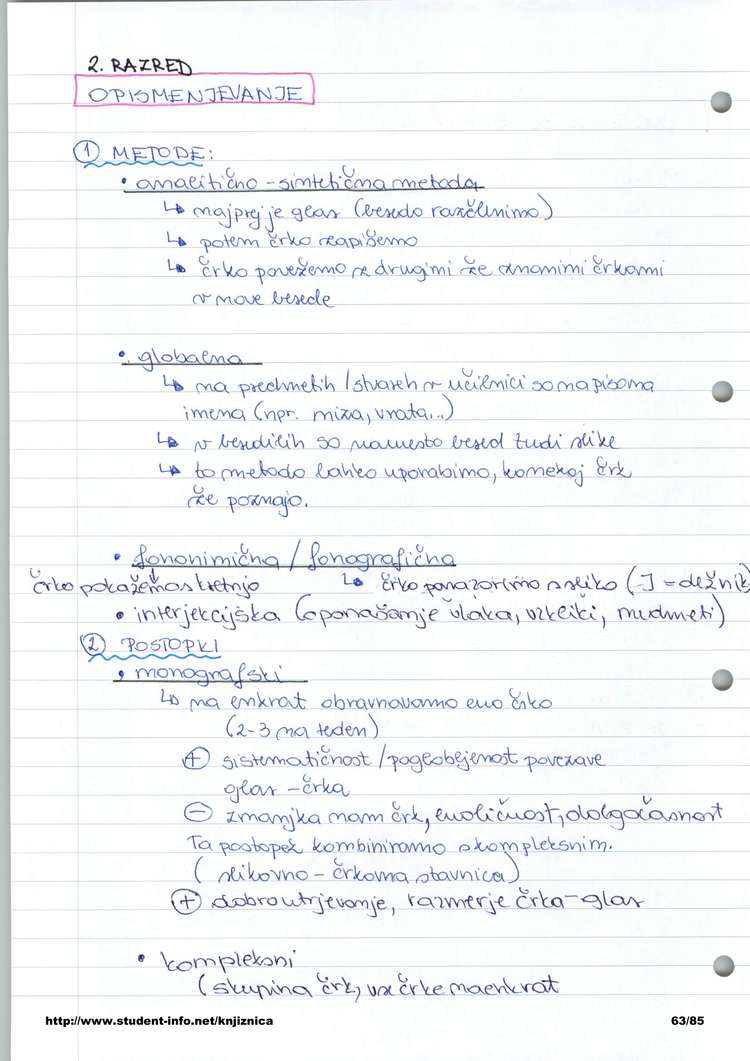 2. RAZRED
OPISMENJEVANJE
1 METODE:
• analitično - sintetična metoda
↳ najprej je glas (besedo razčlenimo)
↳ potem črko zapišemo
↳ črko povežemo z drugimi že znanimi črkami
v nove besede
• globalna
↳ na predmetih / stvareh v učilnici so napisana
imena (npr. miza, vrata...)
↳ v besedilih so namesto besed tudi slike
↳ to metodo lahko uporabimo, ko nekaj črk
že poznajo.
• fononimična / fonografična
črko pokažemo s kretnjo ↳ črko ponazorimo s sliko (J = dežnik
• interjekcijska (oponašanje vlaka, vzkliki, medmeti)
2 POSTOPKI
• monografski
↳ na enkrat obravnavamo eno črko
(2-3 na teden)
+ sistematičnost / poglobljenost povezave
glas - črka
- zmanjka nam črk, enoličnost, dolgočasnost
Ta postopek kombiniramo s kompleksnim.
(slikovno - črkovna stavnica)
+ dobro utrjevanje, razmerje črka - glas
• kompleksni
(skupina črk, vse črke naenkrat
http://www.student-info.net/knjiznica 63/85